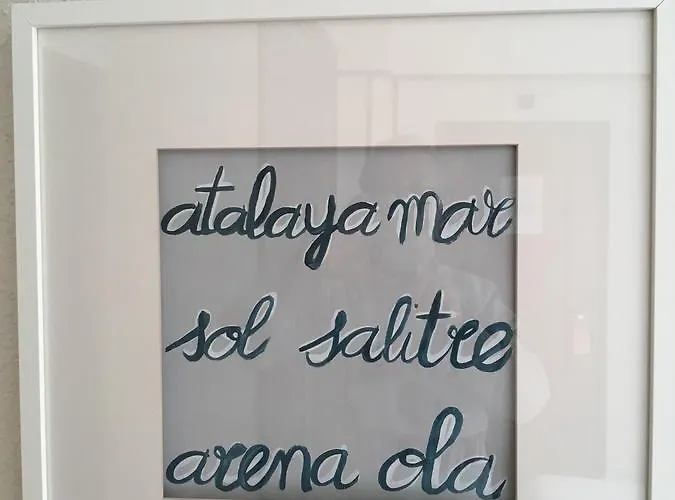 atalaya mar
sol salitre
arena ola